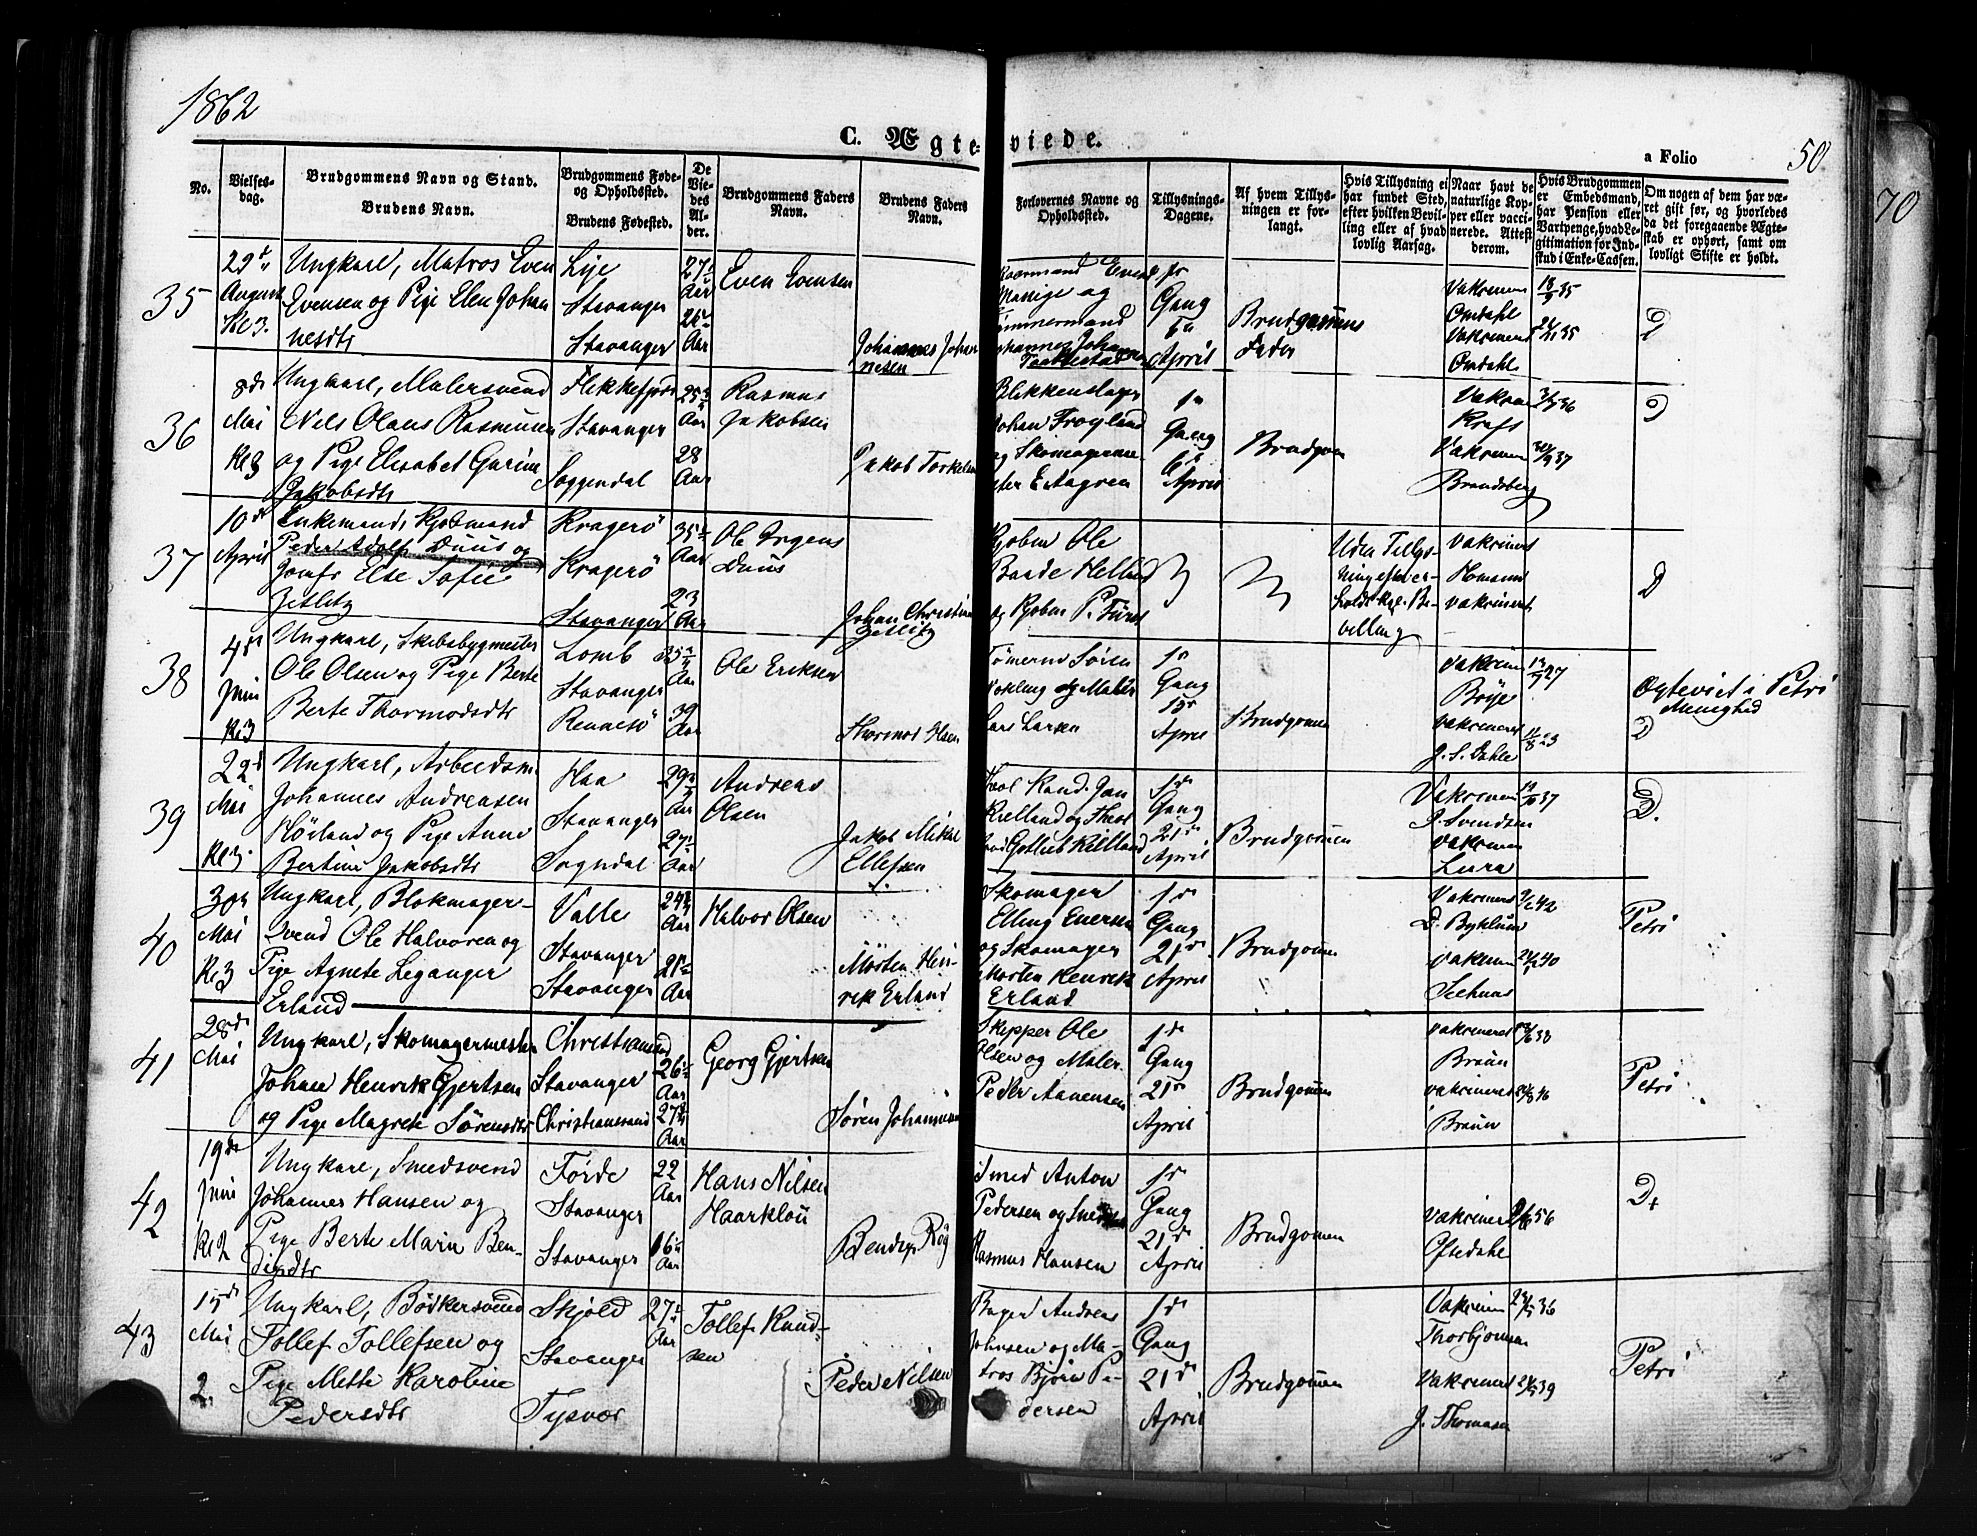 1862
C. Ægteviede.
a Folio 50
70
No.
Vielsesdag.
Brudgommens Navn og Stand.
Brudens Navn.
Brudgommens Føde- og Opholdssted.
Brudens Fødested.
De Viedes Alder.
Brudgommens Faders Navn.
Brudens Faders Navn.
Forlovernes Navne og Opholdssted.
Tillysnings-Dagene.
Af hvem Tillysningen er forlangt.
Hvis Tillysning ei har fundet Sted, efter hvilken Bevilling eller af hvad lovlig Aarsag.
Naar havt de naturlige Kopper eller vaccinerede. Attest derom.
Hvis Brudgommen er Embedsmand, har Pension eller Vartpenge, hvad Legitimation for Indskud i Enke-Cassen.
Om nogen af dem har været gift før, og hvorledes da det foregaaende Ægteskab er ophørt, samt om lovligt Skifte er holdt.
35
29de August Kl 3.
Ungkarl, Matros Even
Evensen og Pige Elen Johan
nesdtr
Lye
Stavanger
Stavanger
27 Aar
26 Aar
Even Evensen
Johannes Johan
nesen
Gang
April
Brudgommens
Fader
Vakcinen
Omdahl
Vakcineret
Omdahl
36
8de Mai Kl 3
Ungkarl, Malersvend
Nils Olaus Rasmussen
og Pige Elisabet Gurine
Jakobsdtr
Flekkefjord
Stavanger
Soggendal
25 Aar
28 Aar
Rasmus
Jakobsen
Jakob Torkelsen
Blikkenslager
Johan Frogland
Gang
April
Brudgom
Vakcinen
Kraft
Vakcinen
Brandsberg
37
10de April
Enkemand, Kjøbmand
Peder Adolf Duus og
Jomfr Else Sofie
Zetlitz
Kragerö
Kragerö
Stavanger
35 Aar
23 Aar
Ole Irgens
Duus
Johan Christian
Zetlitz
Kjøbm Ole
Baade Helland
og Kjøbm P.
Uden Tillys-
ning efter er-
holdt Kgl. Be-
villing
Vakcineret
Homann
vakcineret
D
38
4de Juni Kl 3
Ungkarl, Skibsbygmester
Ole Olsen og Pige Berte
Berte Thormodsdtr
Lomb
Stavanger
Rennesö
35 Aar
39 Aar
Ole Eriksen
Thormod Olsen
Tømerm Sören
og Maler
Lars Larsen
Gang
April
Brudgommen
vakcinen
Böye
vakcineret
J. S. Dahle
Egteviet i Petri
Menighed
D
39
22de Mai Kl 3.
Ungkarl, Arbeidsm.
Johannes Andreasen
Hörland og Pige Anne
Bertine Jakobsdtr
Haa
Stavanger
Sogndal
29 Aar
27 Aar
Andreas
Olsen
Jakob Mikal
Ellefsen
Teol Kand. Jan
Kielland og Theol
Kand Gotlieb Killand
1de
Gang
21de
April
Brudgommen
Vakcinen
Svendsen
vakcinen
Lura
D.
40
30te Mai Kl 3
Ungkarl, Blokmager-
svend Ole Halvorsen og
Pige Agnete Leganger
Erland
Valle
Stavanger
Stavanger
24 Aar
21 Aar
Halvor Olsen
Morten Hen-
rik Erland
Skomager
Elling Enersen
og Skomager
Morten Henrik
Erland
1de
Gang
21de
April
Brudgommen
Vakcineret
D. Byklum
vakcinen
Seehuus
Petri
41
28de Mai
Ungkarl, Skomagermester
Johan Henrik Gjertsen
og Pige Magrete Sörensdtr
Christiansand
Stavanger
Christiansand
26 Aar
27 Aar
Georg Gjertsen
Sören Johannesen
Skipper Ole
Olsen og Maler
Peder Aanensen
1de
Gang
21de
April
Brudgommen
vakcineret
Bruun
vakcineret
Bruun
Petri
42
19de Juni Kl 2
Ungkarl, Smedsvend
Johannes Hansen og
Pige Berte Marin Ben-
dixdtr
Förde
Stavanger
Stavanger
22 Aar
16 Aar
Hans Nilsen
Haarklou
Smed Anton
Pedersen og Smed
Rasmus Hansen
1de
Gang
21de
April
Brudgommen
vakcineret
Oftedahl
43
15de Mai 2.
Ungkarl, Bödkersvend
Tollef Tollefsen og
Pige Mette Karoline
Pedersdtr
Skjold
Stavanger
Tysvær
27 Aar
Tollef Knud-
sen
Peder Nilsen
Bager Andreas
Johnsen og Ma-
tros Björn Pe-
dersen
1de
Gang
21de
April
Brudgommen
Vakcinen
Thorbjörnsen
Vakcineret
J. Thomasen
Petri